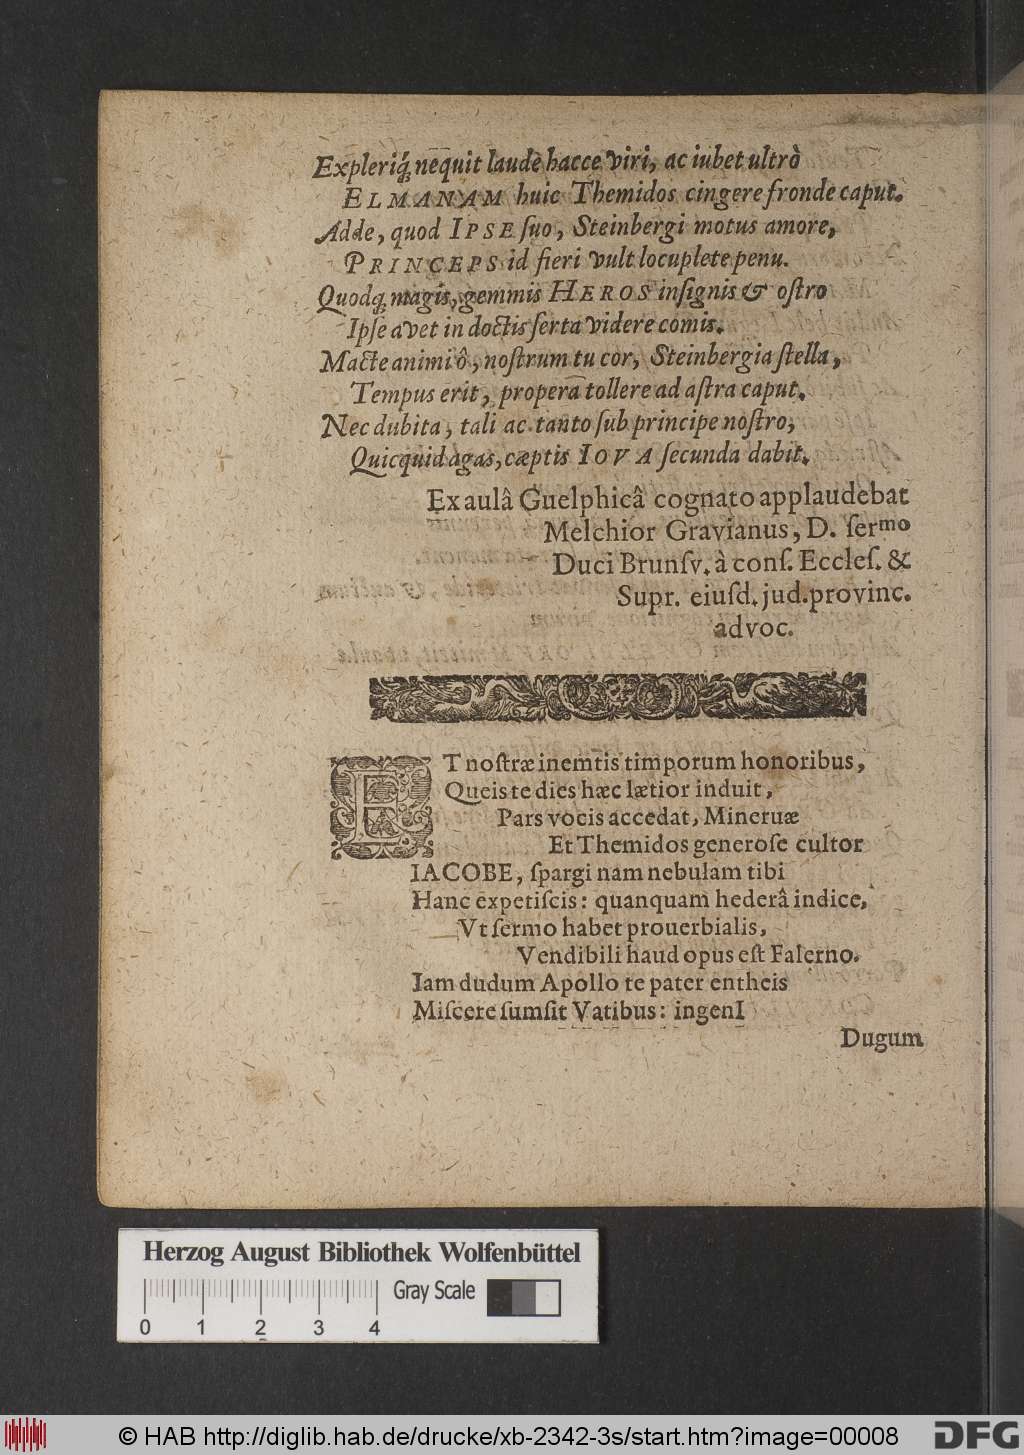 Expleriq́; nequit laude hacce viri, ac iubet ultrò
ELMANAM huic Themidos cingere fronde caput.
Adde, quod IPSE ſuo, Steinbergi motus amore,
PRINCEPS id fieri vult locuplete penu.
Quodq; magis, gemmis HEROS inſignis & oſtro
Ipſe avet in doctis ſerta videre comis.
Macte animi ô, noſtrum tu cor, Steinbergia ſtella,
Tempus erit, propera tollere ad aſtra caput.
Nec dubita, tali ac tanto ſub principe noſtro,
Quicquid agas, cæptis IOVA ſecunda dabit.
Ex aulâ Guelphicâ cognato applaudebat
Melchior Gravianus, D. ſermo
Duci Brunſv. à conſ. Eccleſ. &
Supr. eiuſd. jud. provinc.
advoc.
ET noſtræ inemtis timporum honoribus,
Queis te dies hæc lætior induit,
Pars vocis accedat, Mineruæ
Et Themidos generoſe cultor
IACOBE, ſpargi nam nebulam tibi
Hanc expetiſcis: quanquam hederâ indice,
Vt ſermo habet prouerbialis,
Vendibili haud opus eſt Falerno.
Iam dudum Apollo te pater entheis
Miſcere ſumſit Vatibus: ingenI
Dugum
Herzog August Bibliothek Wolfenbüttel
Gray Scale
0 1 2 3 4
© HAB http://diglib.hab.de/drucke/xb-2342-3s/start.htm?image=00008
DFG